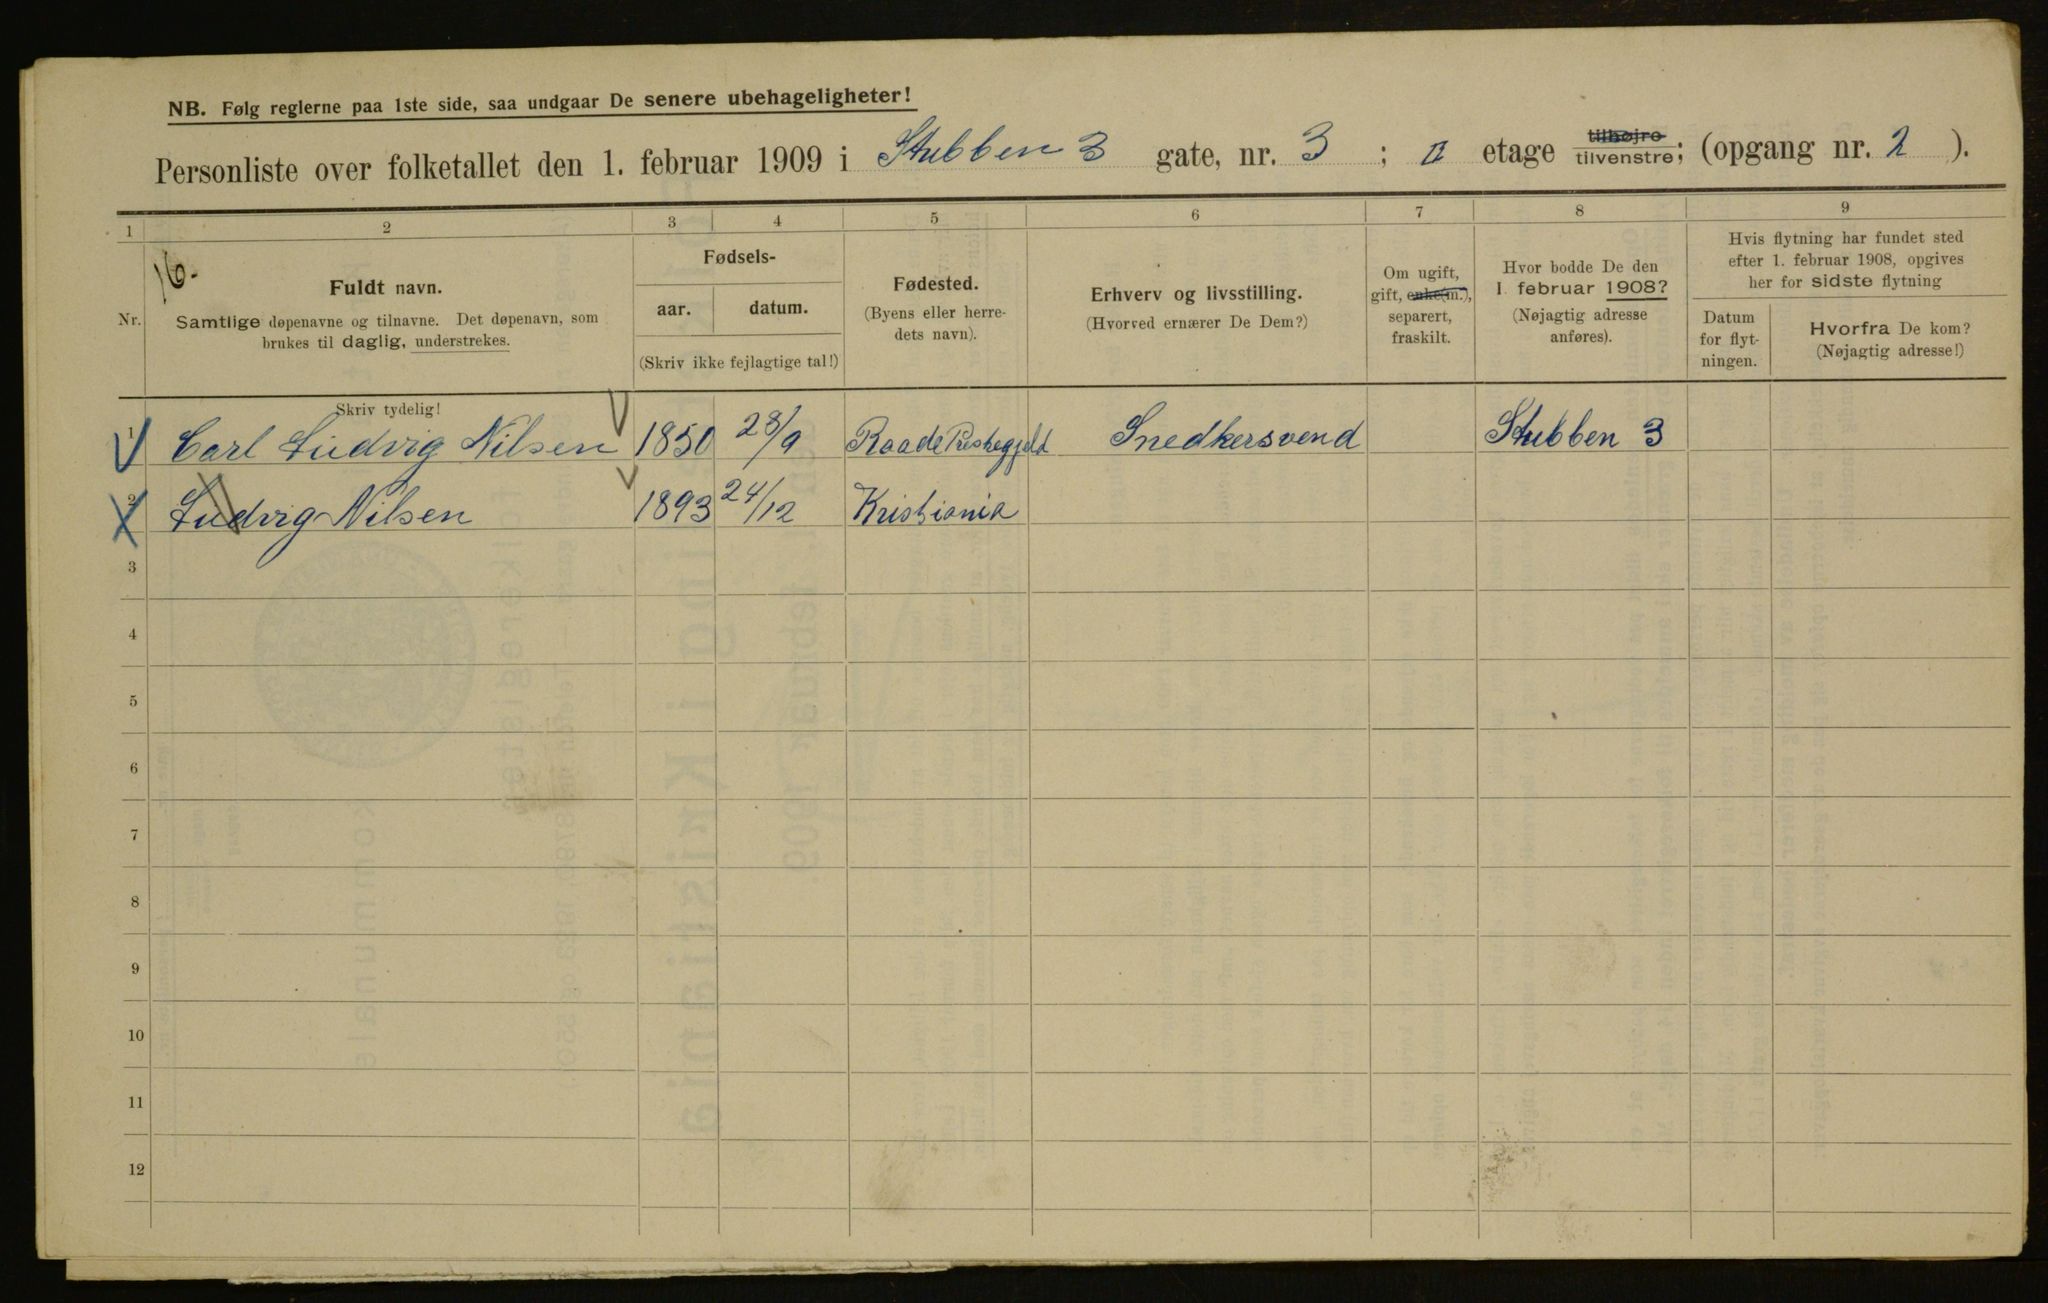 NB. Følg reglerne paa 1ste side, saa undgaar De senere ubehageligheter!
Personliste over folketallet den 1. februar 1909 i Stubben 3 gate, nr. 3 ; II etage tilhøjre tilvenstre; (opgang nr. 2 ).
1 2 3 4 5 6 7 8 9
16.
Nr.
Fuldt navn.
Samtlige døpenavne og tilnavne. Det døpenavn, som
brukes til daglig, understrekes.
Fødsels-
aar. datum.
(Skriv ikke fejlagtige tal!)
Fødested.
(Byens eller herre-
dets navn).
Erhverv og livsstilling.
(Hvorved ernærer De Dem?)
Om ugift,
gift, enke(m.),
separert,
fraskilt.
Hvor bodde De den
1. februar 1908?
(Nøjagtig adresse
anføres).
Hvis flytning har fundet sted
efter 1. februar 1908, opgives
her for sidste flytning
Datum
for flyt-
ningen.
Hvorfra De kom?
(Nøjagtig adresse!)
Skriv tydelig!
1 Carl Ludvig Nilsen 1850 28/9 Raade Prestegjeld Snedkersvend Stubben 3
2 Ludvig Nilsen 1893 24/12 Kristiania
3
4
5
6
7
8
9
10
11
12